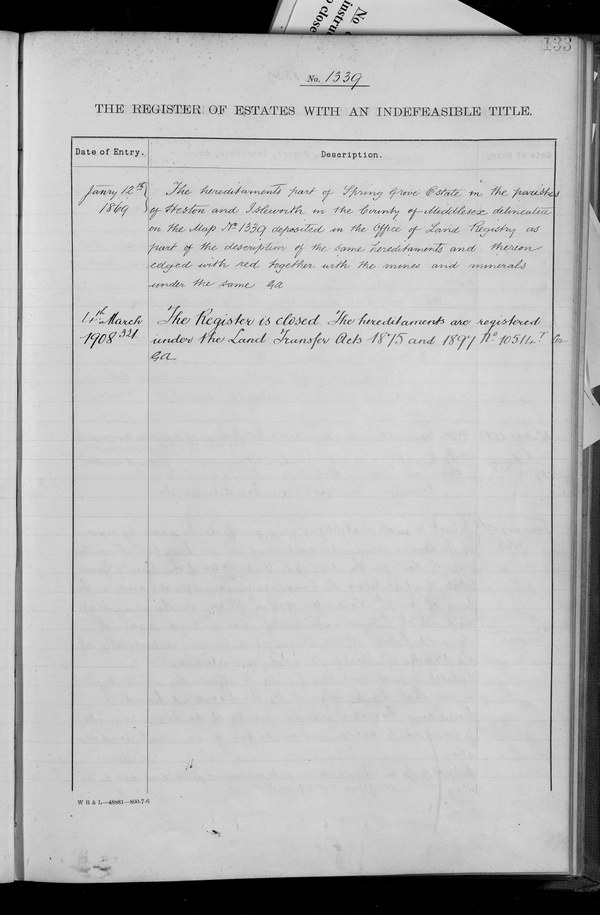 No
instru
to close
133
No. 1339
THE REGISTER OF ESTATES WITH AN INDEFEASIBLE TITLE.
Date of Entry.
Description.
Janry 12th
1869
The hereditaments part of Spring Grove Estate in the parishes
of Heston and Isleworth in the County of Middlesex delineated
on the Map No 1339 deposited in the Office of Land Registry as
part of the description of the same hereditaments and thereon
edged with red together with the mines and minerals
under the same GA
4th March
1908
The Register is closed The hereditaments are registered
under the Land Transfer Acts 1875 and 1897 No. 10514
GA
W B & L—48881—800-7-6